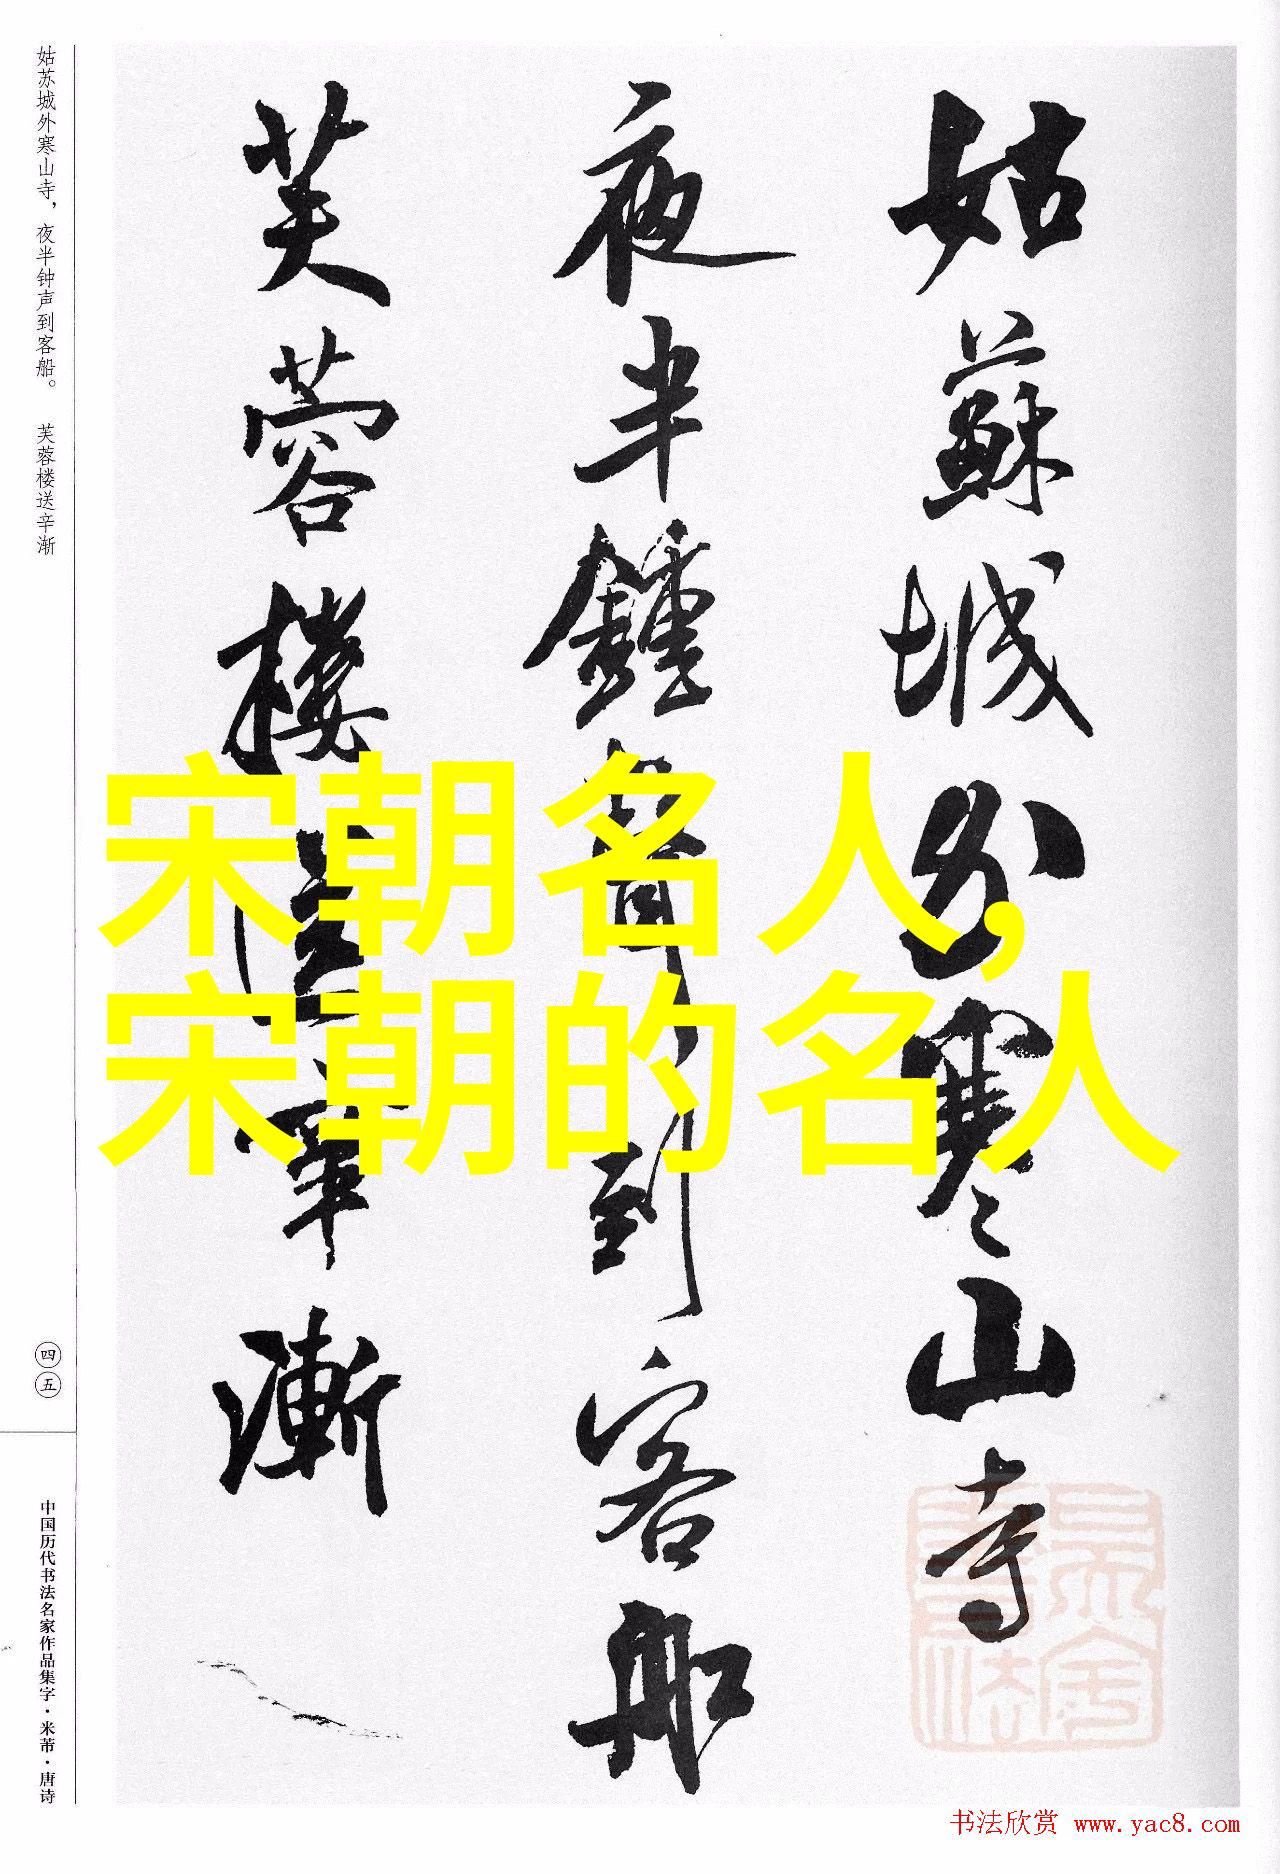 姑蘇城外寒山寺
夜半鍾聲到客船
芙蓉樓送辛漸
宋朝名人,
宋朝的名人
姑苏城外寒山寺，夜半钟声到客船。 芙蓉楼送辛渐
四五
中国历代书法名家作品集字·米芾·唐诗
书法欣赏 www.yac8.com